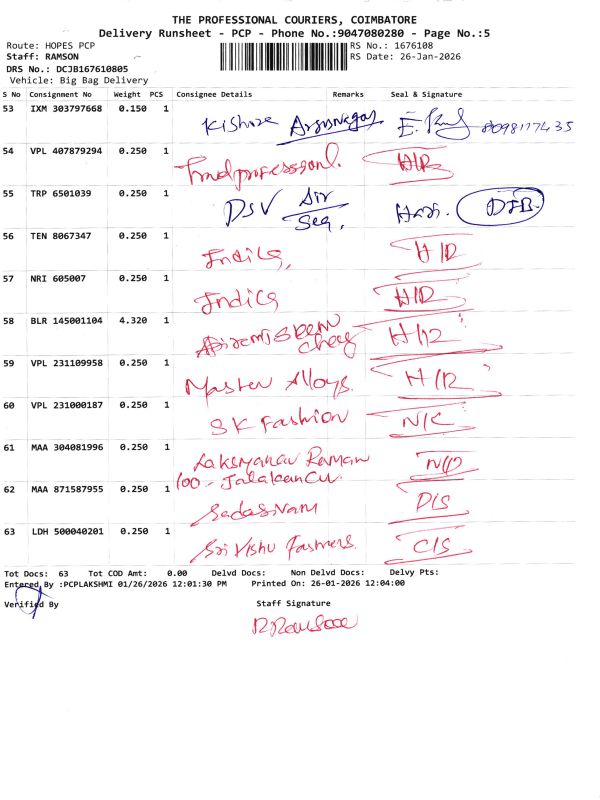 THE PROFESSIONAL COURIERS, COIMBATORE
Delivery Runsheet - PCP - Phone No.:9047080280 - Page No.:5
Route: HOPES PCP
RS No.: 1676108
Staff: RAMSON
RS Date: 26-Jan-2026
DRS No.: DCJB167610805
Vehicle: Big Bag Delivery
S No Consignment No Weight PCS Consignee Details Remarks Seal & Signature
53 IXM 303797668 0.150 1
Kishore
54 VPL 407879294 0.250 1
H/R
55 TRP 6501039 0.250 1
DSV Air Sea, Hari.
56 TEN 8067347 0.250 1
H/R
57 NRI 605007 0.250 1
H/R
58 BLR 145001104 4.320 1
H/R
59 VPL 231109958 0.250 1
Master Alloys. H/R
60 VPL 231000187 0.250 1
SK Fashion N/C
61 MAA 304081996 0.250 1
Raman
100 -
62 MAA 871587955 0.250 1
Sadasivam D/S
63 LDH 500040201 0.250 1
Sri Vishu C/S
Tot Docs: 63 Tot COD Amt: 0.00 Delvd Docs: Non Delvd Docs: Delvy Pts:
Entered By :PCPLAKSHMI 01/26/2026 12:01:30 PM Printed On: 26-01-2026 12:04:00
Verified By Staff Signature